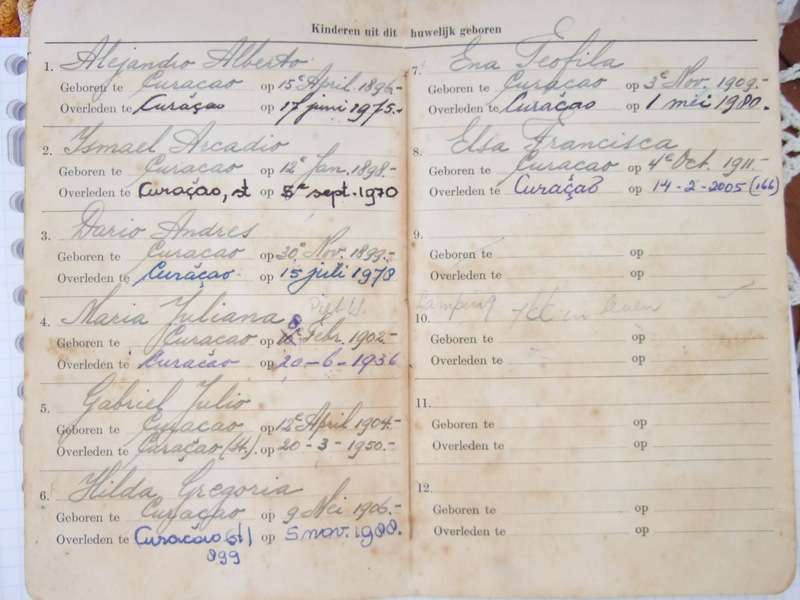 Kinderen uit dit huwelijk geboren
1. Alejandro Alberto
Geboren te Curaçao op 15e April 1896.-
Overleden te Curaçao op 17 juni 1975.-
2. Ismael Arcadio
Geboren te Curacao op 12e Jan. 1898.-
Overleden te Curaçao, st op 5e sept. 1970
3. Dario Andres
Geboren te Curacao op 30e Nov. 1899.-
Overleden te Curaçao. op 15 juli 1978
4. Maria Juliana
Geboren te Curacao op 8 Febr. 1902.-
Overleden te Curacao op 20-6-1936
5. Gabriel Julio
Geboren te Curacao op 12e April 1904.-
Overleden te Curaçao (St.). op 20-3-1950.-
6. Hilda Gregoria
Geboren te Curaçao op 9 Mei 1906.-
Overleden te Curaçao, st) op 5 nov. 1988.
899
7. Ena Teofila
Geboren te Curacao op 3e Nov. 1909.-
Overleden te Curaçao op 1 mei 1980.
8. Elsa Francisca
Geboren te Curacao op 4e Oct. 1911.-
Overleden te Curaçao op 14-2-2005 (166)
9.
Geboren te op
Overleden te op
10.
Geboren te op
Overleden te op
11.
Geboren te op
Overleden te op
12.
Geboren te op
Overleden te op